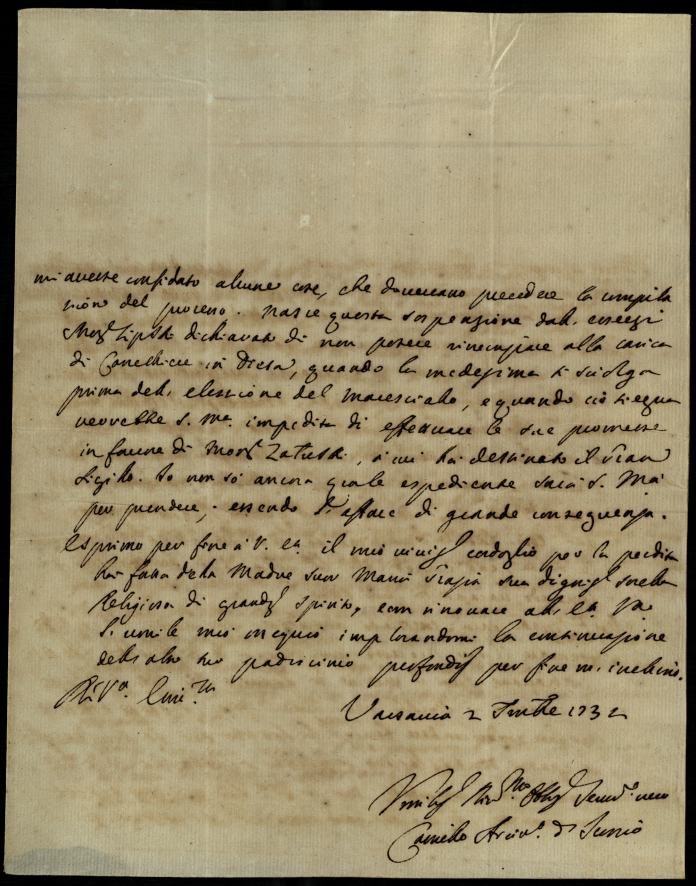 mi avesse confidato alcune cose, che dovevano precedere la compila
zione del processo. Nasce questa sospenzione dall'essersi
Monsr Lipski dichiarato di non potere rinunziare alla carica
di Cancelliere in Dieta, quando la medesima si sciolga
prima dell'elezzione del Maresciallo, e quando ciò segua
verrebbe S. Mtà impedita di effettuare le sue promesse
in favore di Monsr Zaluski, à cui hà destinato il Gran
Sigillo. Io non sò ancora quale espediente sarà S. Mtà
per prendere, essendo l'affare di grande conseguenza.
Esprimo per fine à V. Ea. il mio vivissº cordoglio per la perdita
hà fatta della Madre Suor Maria Grazia sua dignissª sorella
Religiosa di grandº spirito, e con rinovare all'Ea. Vra
l'umile mio ossequio implorandomi la continuazione
dell'alto suo padrocinio profondº per fine m'inchino.
Di Vra Emza
Varsavia 2 1732
Umilº Obbligº Servre vero
Camillo Arcivº di Iconio